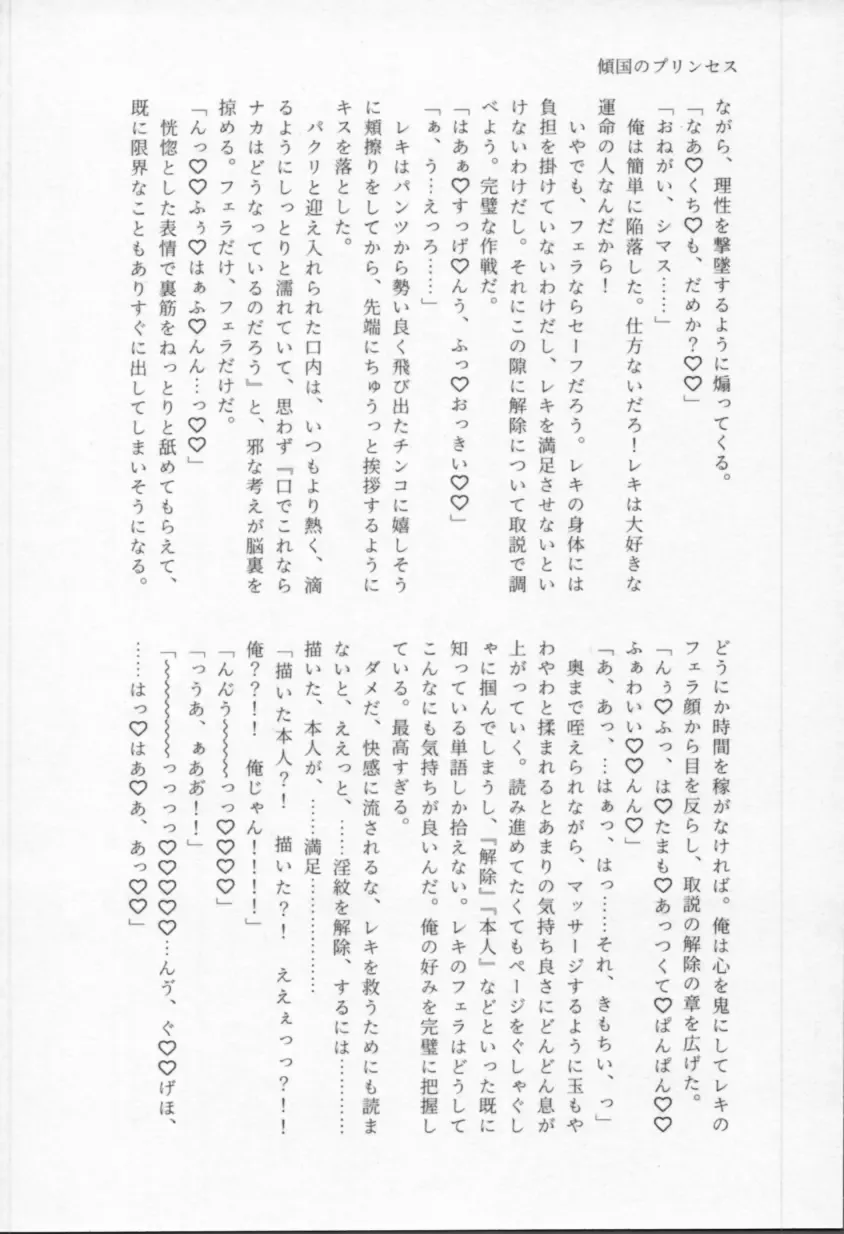 傾国のプリンセス
ながら、理性を撃墜するように煽ってくる。
「なあ♡くち♡も、だめか？♡♡」
「おねがい、シマス……」
　俺は簡単に陥落した。仕方ないだろ！レキは大好きな
運命の人なんだから！
　いやでも、フェラならセーフだろう。レキの身体には
負担を掛けていないわけだし、レキを満足させないとい
けないわけだし。それにこの隙に解除について取説で調
べよう。完璧な作戦だ。
「はあぁ♡すっげ♡んう、ふっ♡おっきい♡♡」
「ぁ、う…えっろ……」
　レキはパンツから勢い良く飛び出たチンコに嬉しそう
に頬擦りをしてから、先端にちゅうっと挨拶するように
キスを落とした。
　パクリと迎え入れられた口内は、いつもより熱く、滴
るようにしっとりと濡れていて、思わず『口でこれなら
ナカはどうなっているのだろう』と、邪な考えが脳裏を
掠める。フェラだけ、フェラだけだ。
「んっ♡♡ふぅ♡はぁふ♡んん…っ♡♡」
　恍惚とした表情で裏筋をねっとりと舐めてもらえて、
既に限界なこともありすぐに出してしまいそうになる。
どうにか時間を稼がなければ。俺は心を鬼にしてレキの
フェラ顔から目を反らし、取説の解除の章を広げた。
「んぅ♡ふっ、は♡たまも♡あっつくて♡ぱんぱん♡♡
ふぁわいい♡♡んん♡」
「あ、あっ、…はぁっ、はっ……それ、きもちい、っ」
　奥まで咥えられながら、マッサージするように玉もや
わやわと揉まれるとあまりの気持ち良さにどんどん息が
上がっていく。読み進めてたくてもページをぐしゃぐし
ゃに掴んでしまうし、『解除』『本人』などといった既に
知っている単語しか拾えない。レキのフェラはどうして
こんなにも気持ちが良いんだ。俺の好みを完璧に把握し
ている。最高すぎる。
　ダメだ、快感に流されるな、レキを救うためにも読ま
ないと、ええっと、……淫紋を解除、するには…………
描いた、本人が、……満足………………
「描いた本人？！　描いた？！　ええぇっっ？！！
俺？？！！　俺じゃん！！！！」
「んぢう〜〜〜〜っっ♡♡♡♡」
「っうあ、ぁあぢ！！」
「〜〜〜〜〜〜っっっっ♡♡♡♡♡…んゔ、ぐ♡♡げほ、
……はっ♡はあ♡あ、あっ♡♡」